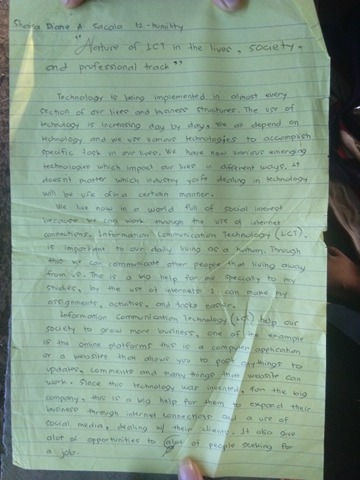 Diane A. Sacala 12-humility
"Nature of ICT in the lives, society,
and professional track"
Technology is being implemented in almost every
section of our lives and business structures. The use of
technology is increasing day by day. We all depend on
technology and we use various technologies to accomplish
specific task in our lives. We have now various emerging
technologies which impact our lives in different ways. it
doesnt matter which industry you're dealing in technology
will be use in a certain manner.
We live now in a world full of social interest
because we can work through the use of internet
connections. Information Communication Technology (ICT).
is important to our daily living as a human. Through
this we can communicate other people that living away
from us. The is a big help for me specialy to my
studies, by the use of internets I can make my
assignments, activities, and tasks easier.
Information Communication Technology (ICT) help our
society to grow more business, one of the example
is the online platforms this is a computer application
or a websites that allows you to post anythings to
updates, comments and many things that website can
work. Since this technology was invented, for the big
company, this is a big help for them to expand their
business through internet connections and a use of
social media, dealing w/ their clients. It also give
alot of opportunities to alot of people seeking for
a job.